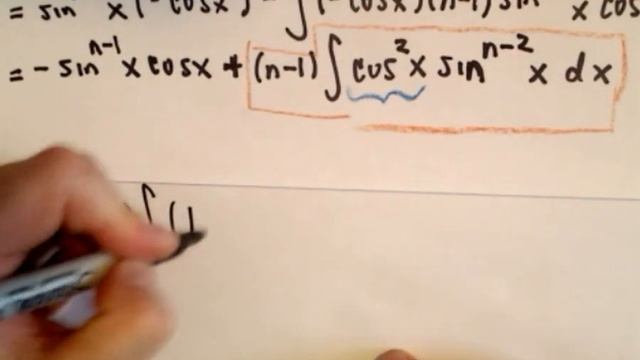 = sin x (-cosx) - ∫(-cosx)(n-1) sin x cos
= - sin^{n-1} x cosx + (n-1) ∫ cos² x sin^{n-2} x dx
∫ (1